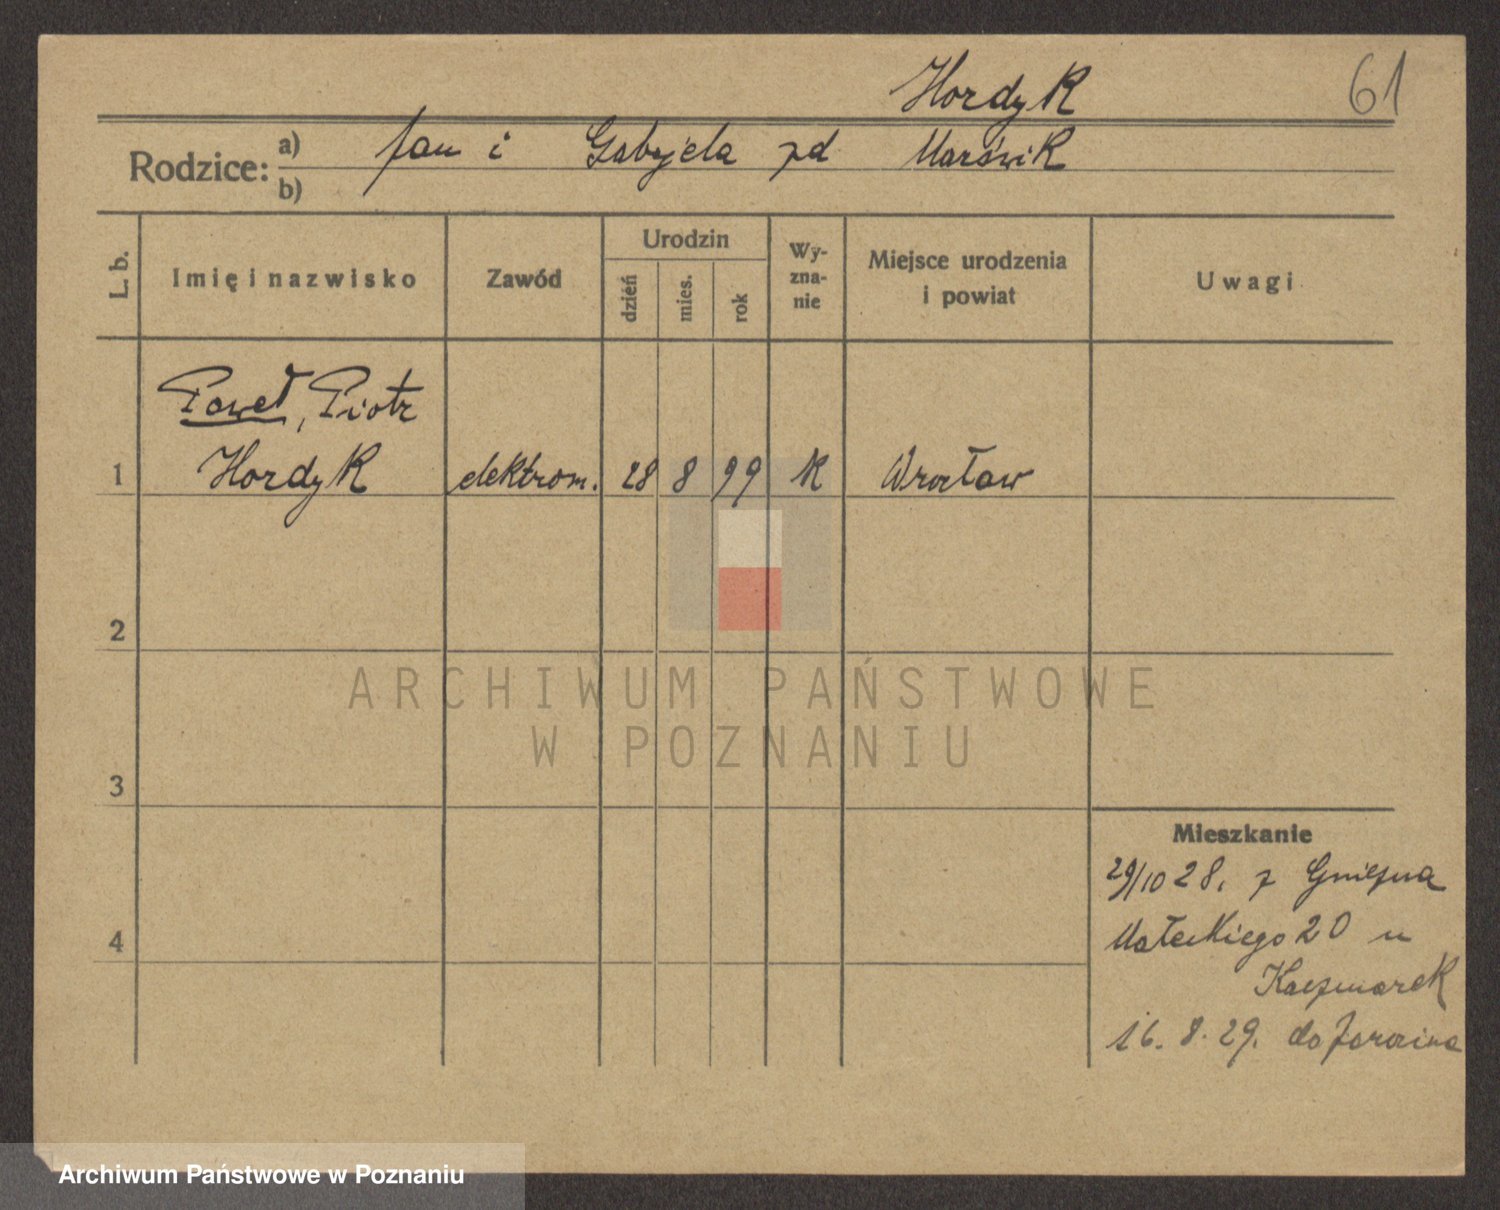 Hordyk
61
Rodzice: a) Jan i Gabryela zd Marświk
b)
L. b.
Imię i nazwisko
Zawód
Urodzin
dzień
mies.
rok
Wy-
zna-
nie
Miejsce urodzenia
i powiat
Uwagi
Paweł, Piotr
1 Hordyk elektrom. 28 8 99 k Wrocław
2
ARCHIWUM PAŃSTWOWE
W POZNANIU
3
Mieszkanie
29/10 28. z Gniezna
4
Małeckiego 20 u
Kaczmarek
16. 8. 29. do Jarocina
Archiwum Państwowe w Poznaniu